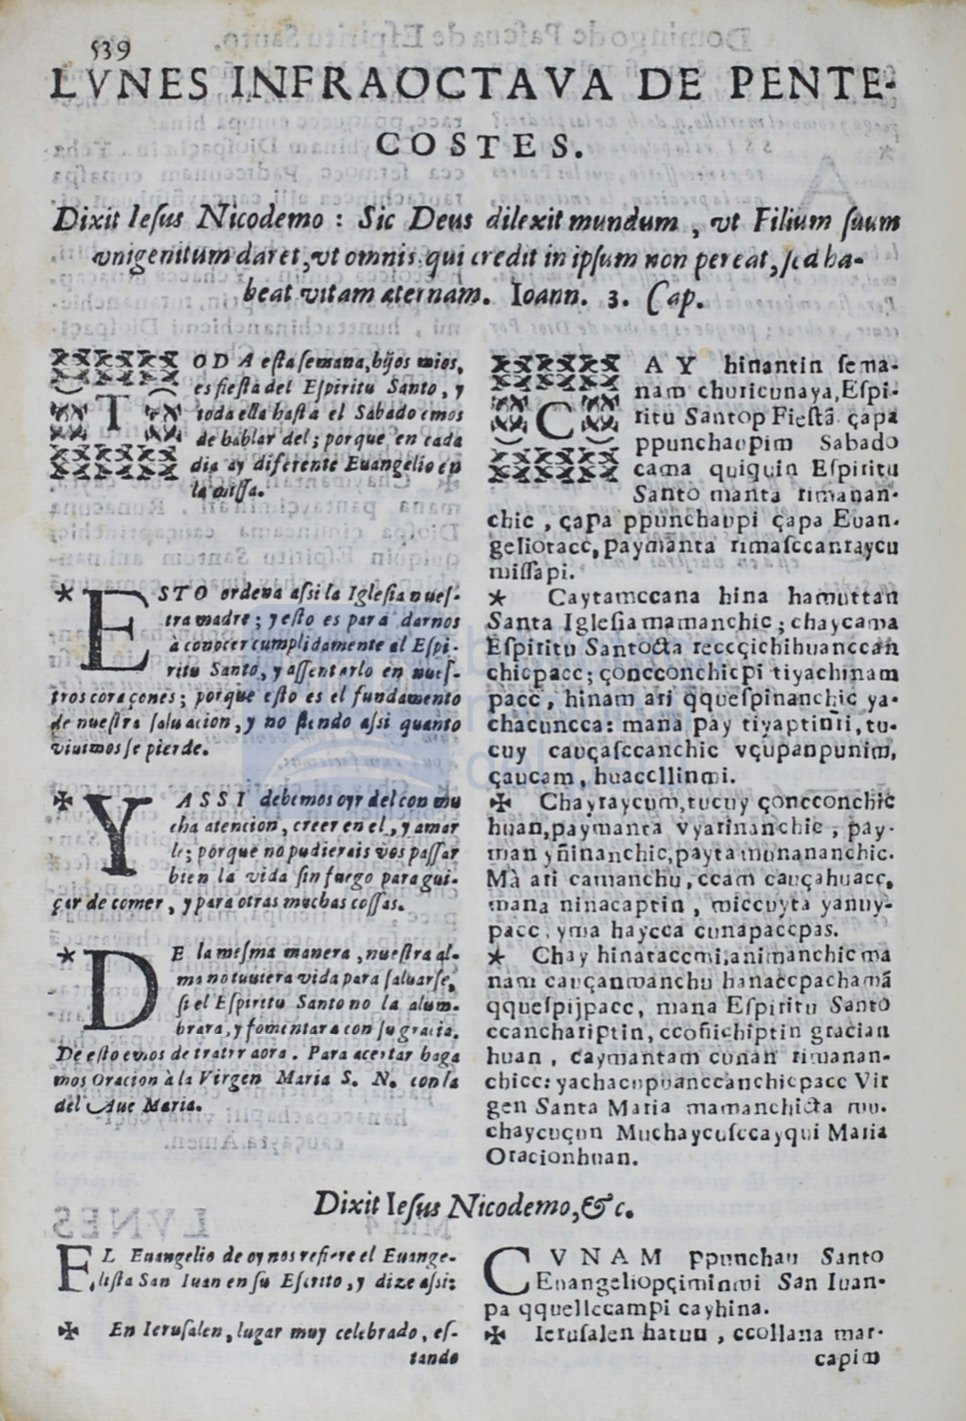 539
LVNES INFRAOCTAVA DE PENTE-
COSTES.
Dixit Iesus Nicodemo : Sic Deus dilexit mundum , vt Filium suum
vnigenitum daret, vt omnis qui credit in ipsum non pereat, sed ha-
beat vitam æternam. Ioann. 3. Cap.
TODA esta semana, hijos mios,
es fiesta del Espiritu Santo, y
toda ella hasta el Sabado emos
de hablar del; porque en cada
dia ay diferente Euangelio en
la missa.
* ESTO ordena assi la Iglesia nues-
tra madre; y esto es para darnos
à conocer cumplidamente al Espi-
ritu Santo, y assentarlo en nues-
tros coraçones; porque esto es el fundamento
de nuestra saluacion, y no siendo assi quanto
viuimos se pierde.
✠ Y ASSI debemos oyr del con mu
cha atencion, creer en el, y amar
le; porque no pudierais vos passar
bien la vida sin fuego para gui-
çar de comer, y para otras muchas cossas.
* DE la mesma manera, nuestra al-
ma no tuuiera vida para saluarse,
si el Espiritu Santo no la alum-
brara, y fomentara con su gracia.
De esto emos de tratrr aora. Para acertar haga
mos Oracion à la Virgen Maria S. N. con la
del Aue Maria.
CAY hinantin sema-
nam churicunaya, Espi-
ritu Santop Fiestã çapa
ppunchaupim Sabado
cama quiquin Espiritu
Santo manta rimanan-
chic, çapa ppunchaupi çapa Euan-
geliotacc, paymãnta rimasccantaycu
missapi.
* Caytamccana hina hamuttan
Santa Iglesia mamanchic; chaycama
Espiritu Santocta reccçichihuanccan
chicpacc; çoncconchicpi tiyachinam
pacc, hinam ari qquespinanchic ya-
chacuncca: mana pay tiyaptinri, tu-
cuy cauçasccanchic vçupanpunim,
çaucam, huaccllinmi.
✠ Chayraycum, tucuy çoncconchic
huan, paymanta vyarinanchic, pay-
man yñinanchic, payta munananchic.
Mà ari camanchu, ccam cauçahuacc,
mana ninacaptin, miccuyta yanuy-
pacc, yma haycca cunapaccpas.
* Chay hinataccmi, animanchic ma
nam cauçanmanchu hanaccpachamã
qquespijpacc, mana Espiritu Santo
ccanchariptin, ccoñichiptin gracian
huan, caymantam cunan rimanan-
chicc: yachacupuanccanchicpacc Vir
gen Santa Maria mamanchicta mu-
chaycuçun Muchaycusccayqui Maria
Oracionhuan.
Dixit Iesus Nicodemo, &c.
EL Euangelio de oy nos refiere el Euange-
lista San Iuan en su Escrito, y dize assi:
✠ En Ierusalen, lugar muy celebrado, es-
tando
CVNAM ppunchau Santo
Euangeliopçiminmi San Iuan-
pa qquellccampi cayhina.
✠ Ierusalen hatun, ccollana mar-
capim